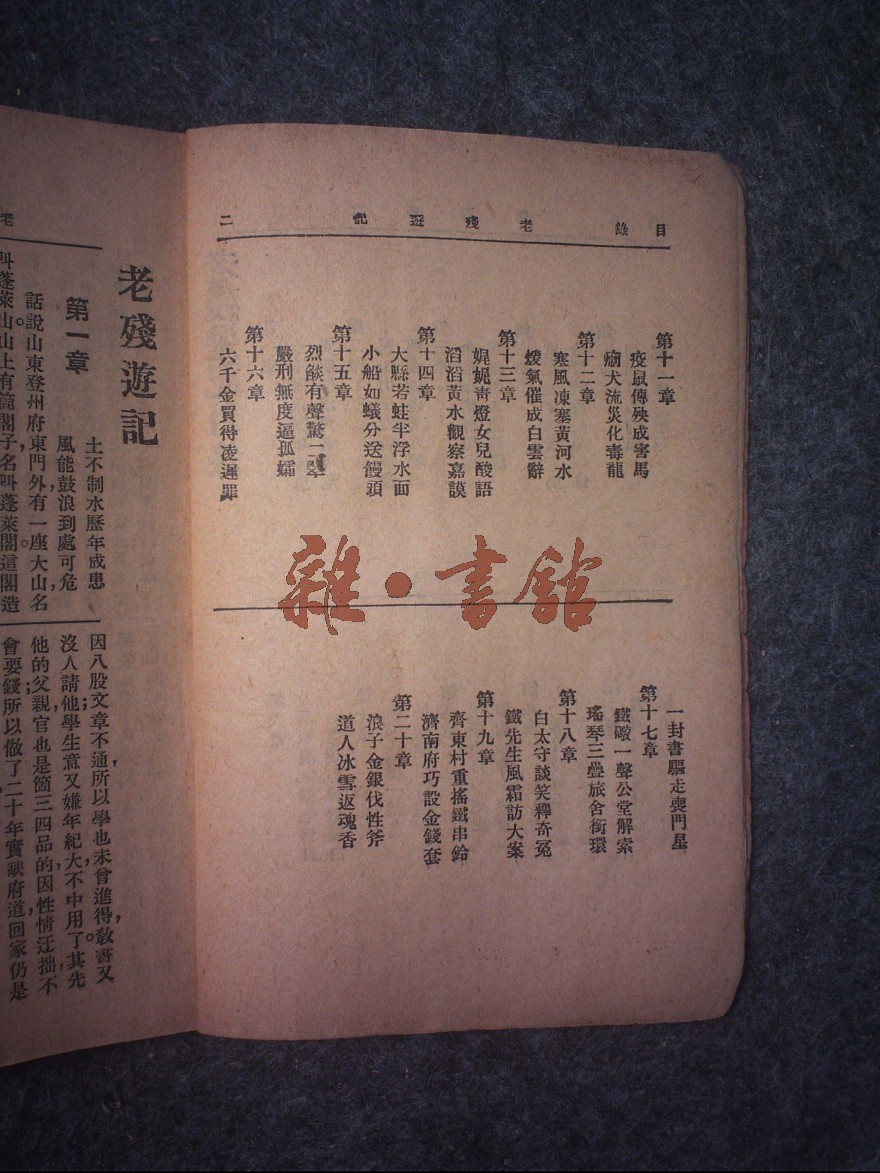 目錄　老殘遊記　二
第十一章
疫鼠傳殃成害馬
癎犬流災化毒龍
第十二章
寒風凍塞黃河水
煖氣催成白雲辭
第十三章
娓娓靑燈女兒酸語
滔滔黃水觀察嘉謨
第十四章
大縣若蛙半浮水面
小船如蟻分送饅頭
第十五章
烈燄有聲驚二翠
嚴刑無度逼孤孀
第十六章
六千金買得凌遲罪
一封書驅走喪門星
第十七章
鐵礮一聲公堂解索
瑤琴三疊旅舍銜環
第十八章
白太守談笑釋奇冤
鐵先生風霜訪大案
第十九章
齊東村重搖鐵串鈴
濟南府巧設金錢套
第二十章
浪子金銀伐性斧
道人冰雪返魂香
雜·書館
老
老殘遊記
第一章
土不制水歷年成患
風能鼓浪到處可危
話說山東登州府東門外有一座大山，名
叫蓬萊山。山上有箇閣子，名叫蓬萊閣。這閣造
因八股文章不通，所以學也未曾進得，敎書又
沒人請他；學生意又嫌年紀大，不中用了。其先，
他的父親官也是箇三四品的；因性情迂拙，不
會要錢，所以做了二十年實缺，府道回家仍是